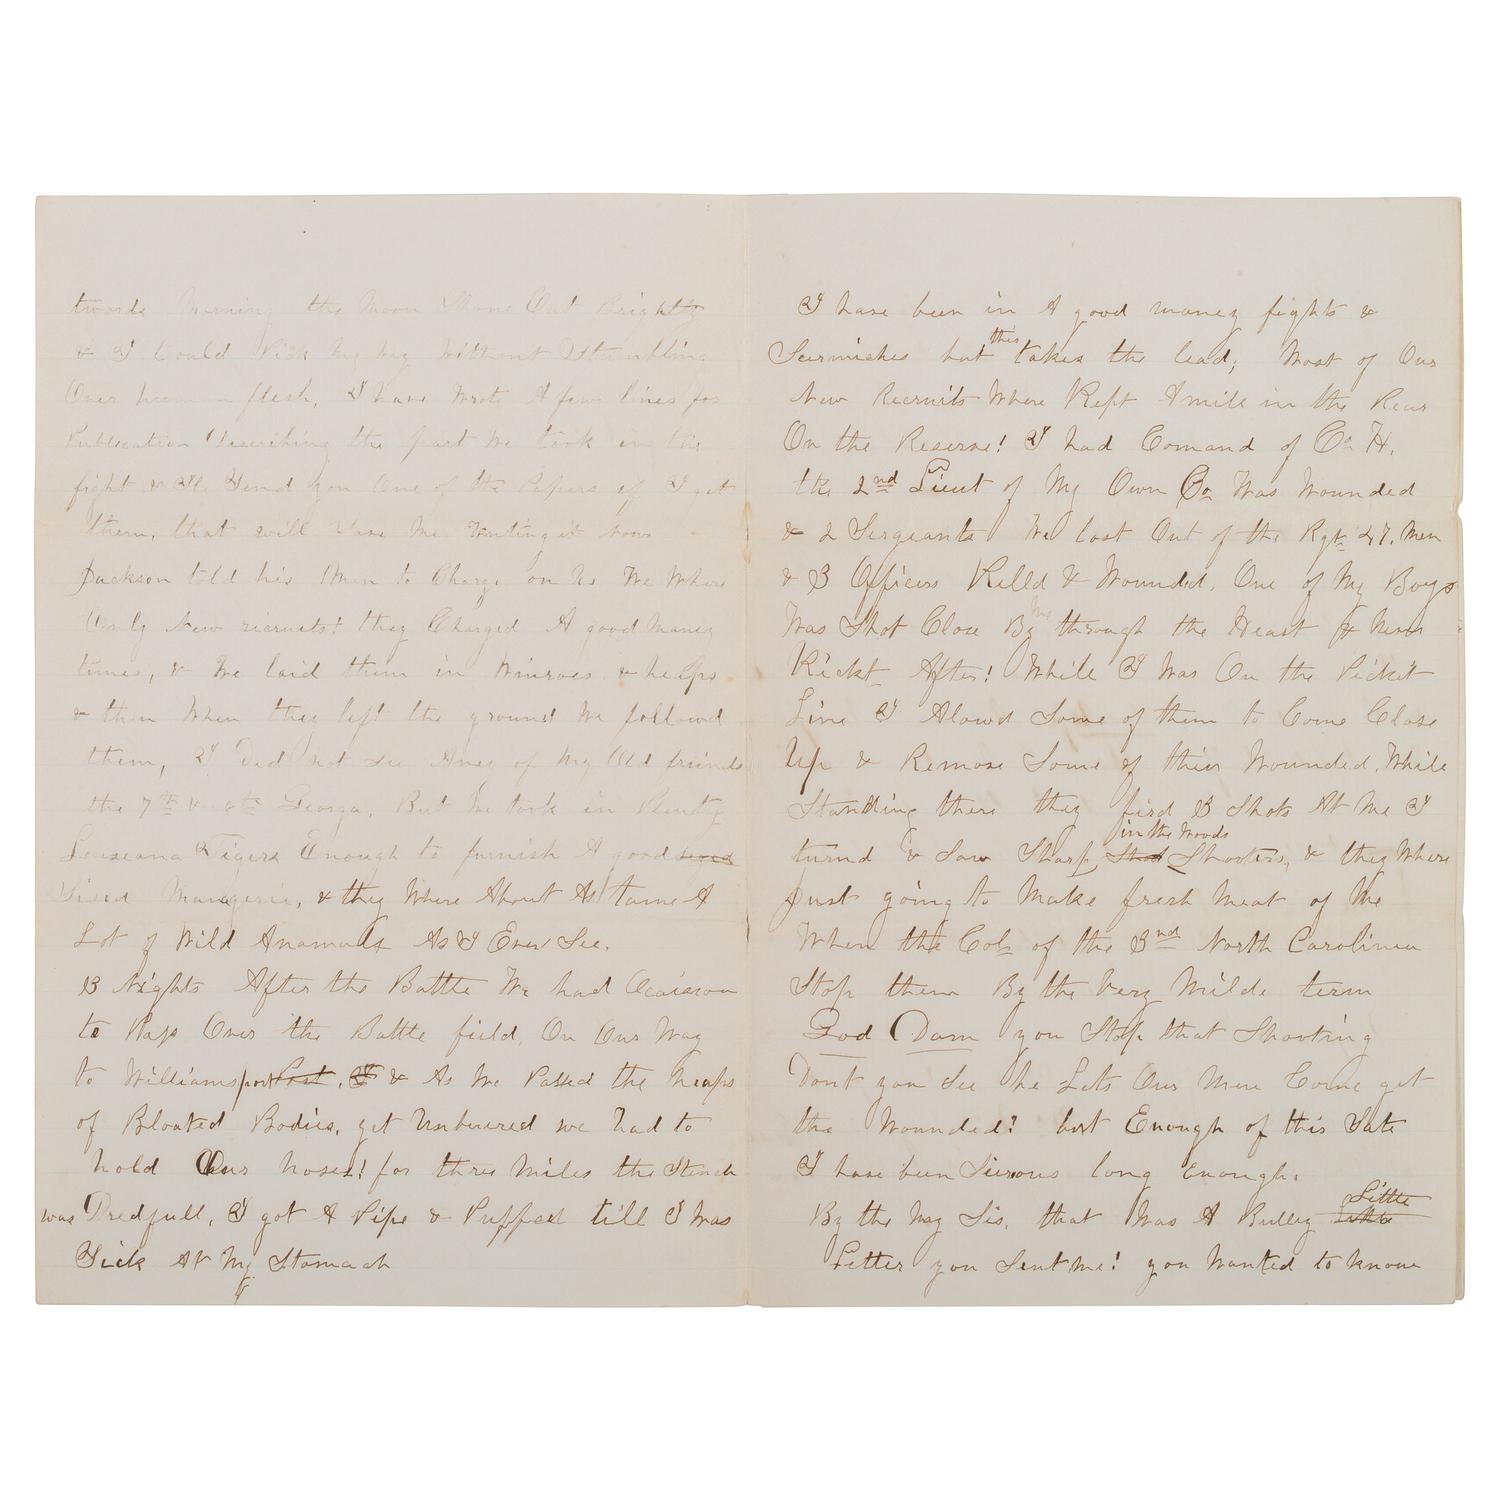 twords Morning the Moon Shone Out Brightly
& I Could Pick My way Without Stumbling
Over human flesh, I have Wrote A few lines for
Publication Describing the part We took in the
fight & Ile Send you One of the Papers if I get
them, that will save me writing it Now
Jackson told his Men to Charge on Us We Where
Only New recruits! they Charged A good Maney
times, & We laid them in Winroes & heaps
& then When they left the ground We followd
them, I Did not See Aney of My Old friends
the 7th & 8th Georga, But We took in Plenty
Louseana Tigers Enough to furnish A good sized
Sised Managerie, & they Where About As tame A
Lot of Wild Anamals As I Ever See.
3 Nights After the Battle We had Ocaison
to Pass Over the Battle field, On Our Way
to Williamsport Port, I & As We Passed the heaps
of Bloated Bodies, yet Unburied we had to
hold Our noses! for three Miles the Stench
was Dredfull, I got A Pipe & Puffed till I Was
Sick At My Stomach
I have been in A good maney fights &
Scirmiches but this takes the lead; Most of Our
New Recruits Where Kept A mile in the Rear
On the Reserve! I had Comand of Co H.
the 2nd Lieut of My Own Co Was Wounded
& 2 Sergeants We lost Out of the Rgt 47. Men
& 3 Officers Killd & Wounded. One of My Boys
Was Shot Close By Me through the Heart & Never
Kickt After! While I Was On the Picket
Line I Alowd Some of them to Come Close
Up & Remove Some of their Wounded, While
Standing there they fird 3 Shots At Me I
turnd & Saw Sharp Shot Shooters, in the Woods & they Where
Just going to Make fresh Meat of Me
When the Col of the 3nd North Carolinia
Stop them By the Very Milde term
God Dam you Stop that Shooting
Dont you See he Lets Our Men Come get
the Wounded? but Enough of this Sate
I have been Sierous long Enough.
By the Way Sis, that Was A Bulley Little
Letter you Sent me! you Wanted to know